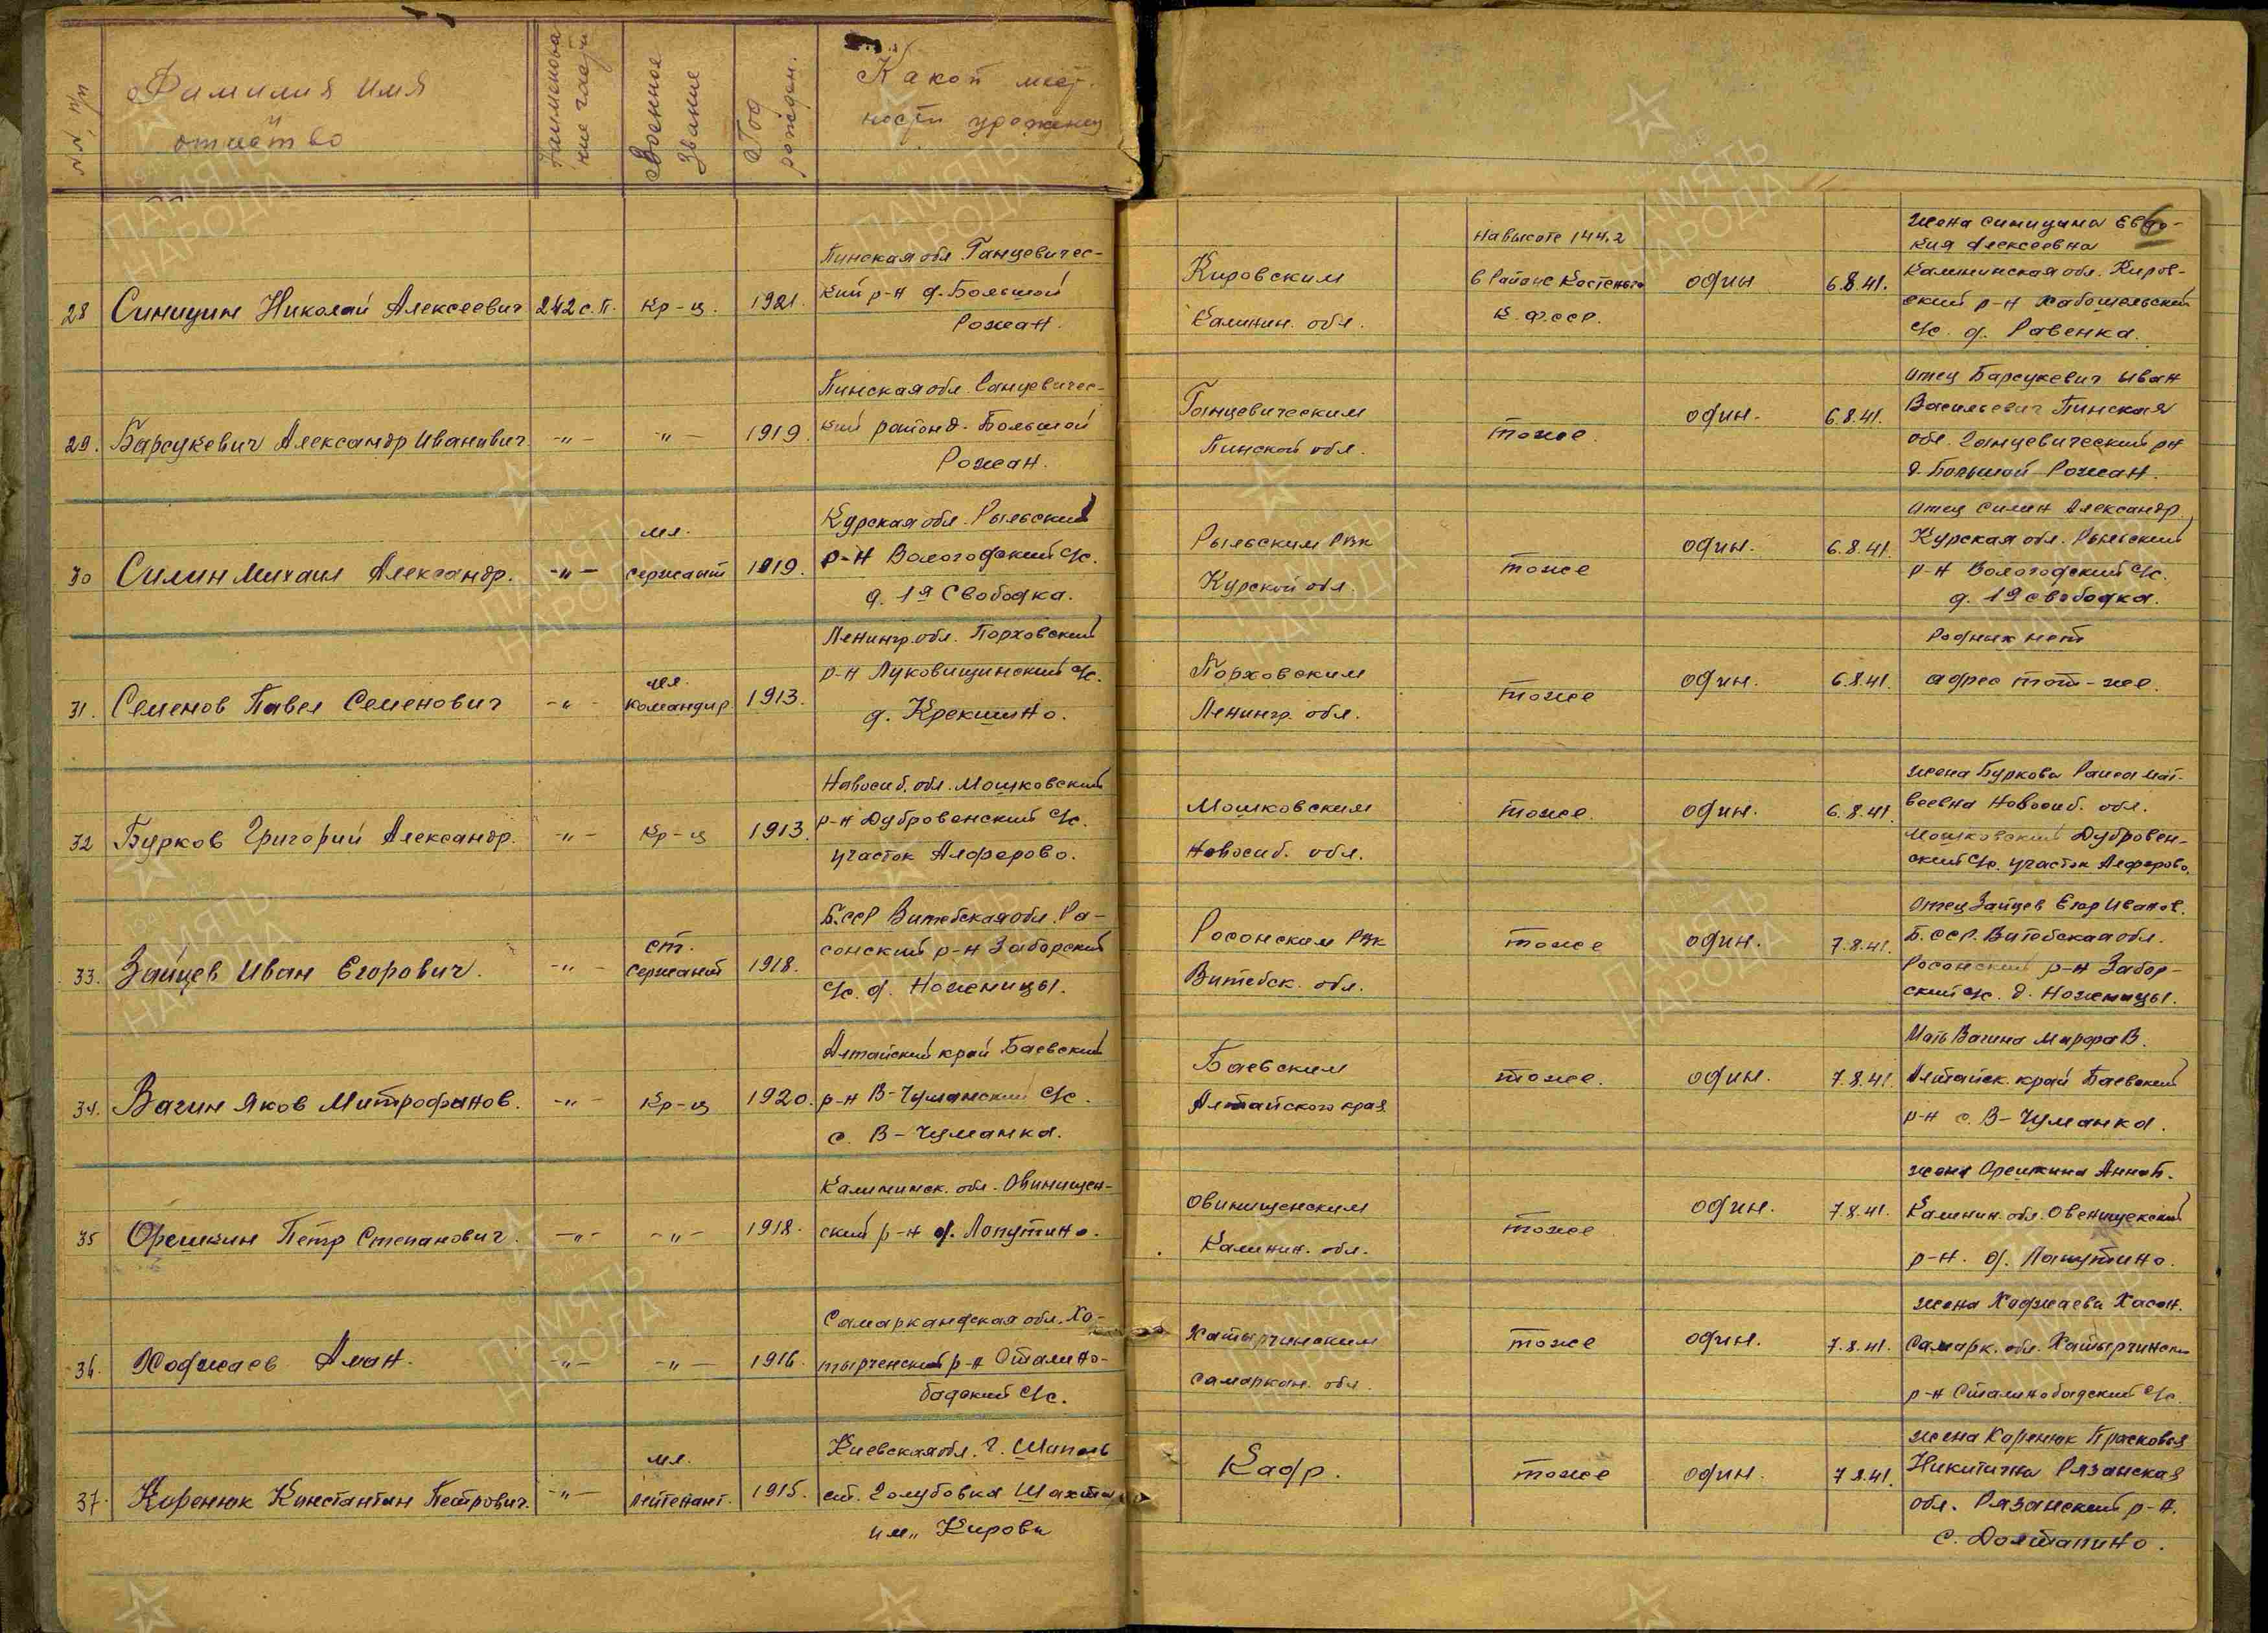 №№ п/п
Фамилия имя
и
отчество
Наименова
ние части
Военное
звание
Год
рожден.
Какой мест-
ности уроженец
6
28 Синицин Николай Алексеевич 242 с.п. Кр-ц. 1921.
Пинская обл Ганцевичес-
кий р-н д. Большой
Рожан.
Кировским
Калинин. обл.
На высоте 144,2
в районе Костеньга
К.Ф.ССР.
один 6.8.41.
жена Синицина Евдо-
кия Алексеевна
Калининская обл. Киров-
ский р-н
с/с. д. Равенка.
29. Барсукевич Александр Иванович -"- -"- 1919.
Пинская обл. Ганцевичес-
кий район д. Большой
Рожан.
Ганцевическим
Пинской обл.
тоже. один. 6.8.41.
отец Барсукевич Иван
Васильевич Пинская
обл. Ганцевический рн
д. Большой Рожан.
30 Силин Михаил Александр. -"- мл.
сержант 1919.
Курская обл. Рыльский
р-н Вологодский с/с.
д. 1я Свободка.
Рыльским РВК
Курской обл.
тоже один. 6.8.41.
отец Силин Александр
Курская обл. Рыльский
р-н Вологодский с/с.
д. 1я Свободка.
31. Семенов Павел Семенович -"- мл.
командир. 1913.
Ленингр. обл. Порховский
р-н Луковищинский с/с.
д. Крекшино.
Порховским
Ленингр. обл.
тоже один. 6.8.41.
Родных нет
адрес тот-же.
32 Бурков Григорий Александр. -"- Кр-ц 1913.
Новосиб. обл. Мошковский
р-н Дубровенский с/с.
участок Алферово.
Мошковским
Новосиб. обл.
тоже. один. 6.8.41.
жена Буркова Раиса Мат-
веевна Новосиб. обл.
Мошковский Дубровен-
ский с/с. участок Алферово.
33. Зайцев Иван Егорович. -"- ст.
сержант 1918.
Б.ССР Витебская обл. Ра-
сонский р-н Заборский
с/с. д. Ноженицы.
Росонским РВК
Витебск. обл.
тоже один. 7.8.41.
Отец Зайцев Егор Иванов.
Б.ССР. Витебская обл.
Росонский р-н Забор-
ский с/с. д. Ноженицы.
34. Вагин Яков Митрофанов. -"- Кр-ц 1920.
Алтайский край Баевский
р-н В-Чуманский с/с.
с. В-Чуманка.
Баевским
Алтайского края
тоже. один. 7.8.41.
Мать Вагина В.
Алтайск. край Баевский
р-н с. В-Чуманка.
35 Орешкин Петр Степанович. -"- -"- 1918.
Калининск. обл. Овинищен-
ский р-н д. Лопутино.
Овинищенским
Калинин. обл.
тоже один. 7.8.41.
жена Орешкина Анна Б.
Калинин. обл. Овенищенский
р-н. д. Лапутино.
36. Ходжаев Аман. -"- -"- 1916.
Самаркандская обл. Ха-
тырченский р-н Сталино-
бадский с/с.
Хатырчинским
Самаркан. обл.
тоже один. 7.8.41.
жена Ходжаева Хасан.
Самарк. обл. Хатырчински
р-н Сталинобадский с/с.
37. Коренюк Константин Петрович. -"- мл.
лейтенант. 1915.
Киевская обл. г. Шиполь
ст. Голубовка Шахта
им. Кирова
Кадр.
тоже один. 7.8.41.
жена Коренюк Прасковья
Никитична Рязанская
обл. Рязанский р-н.
с. Долтапино.
ПАМЯТЬ
НАРОДА